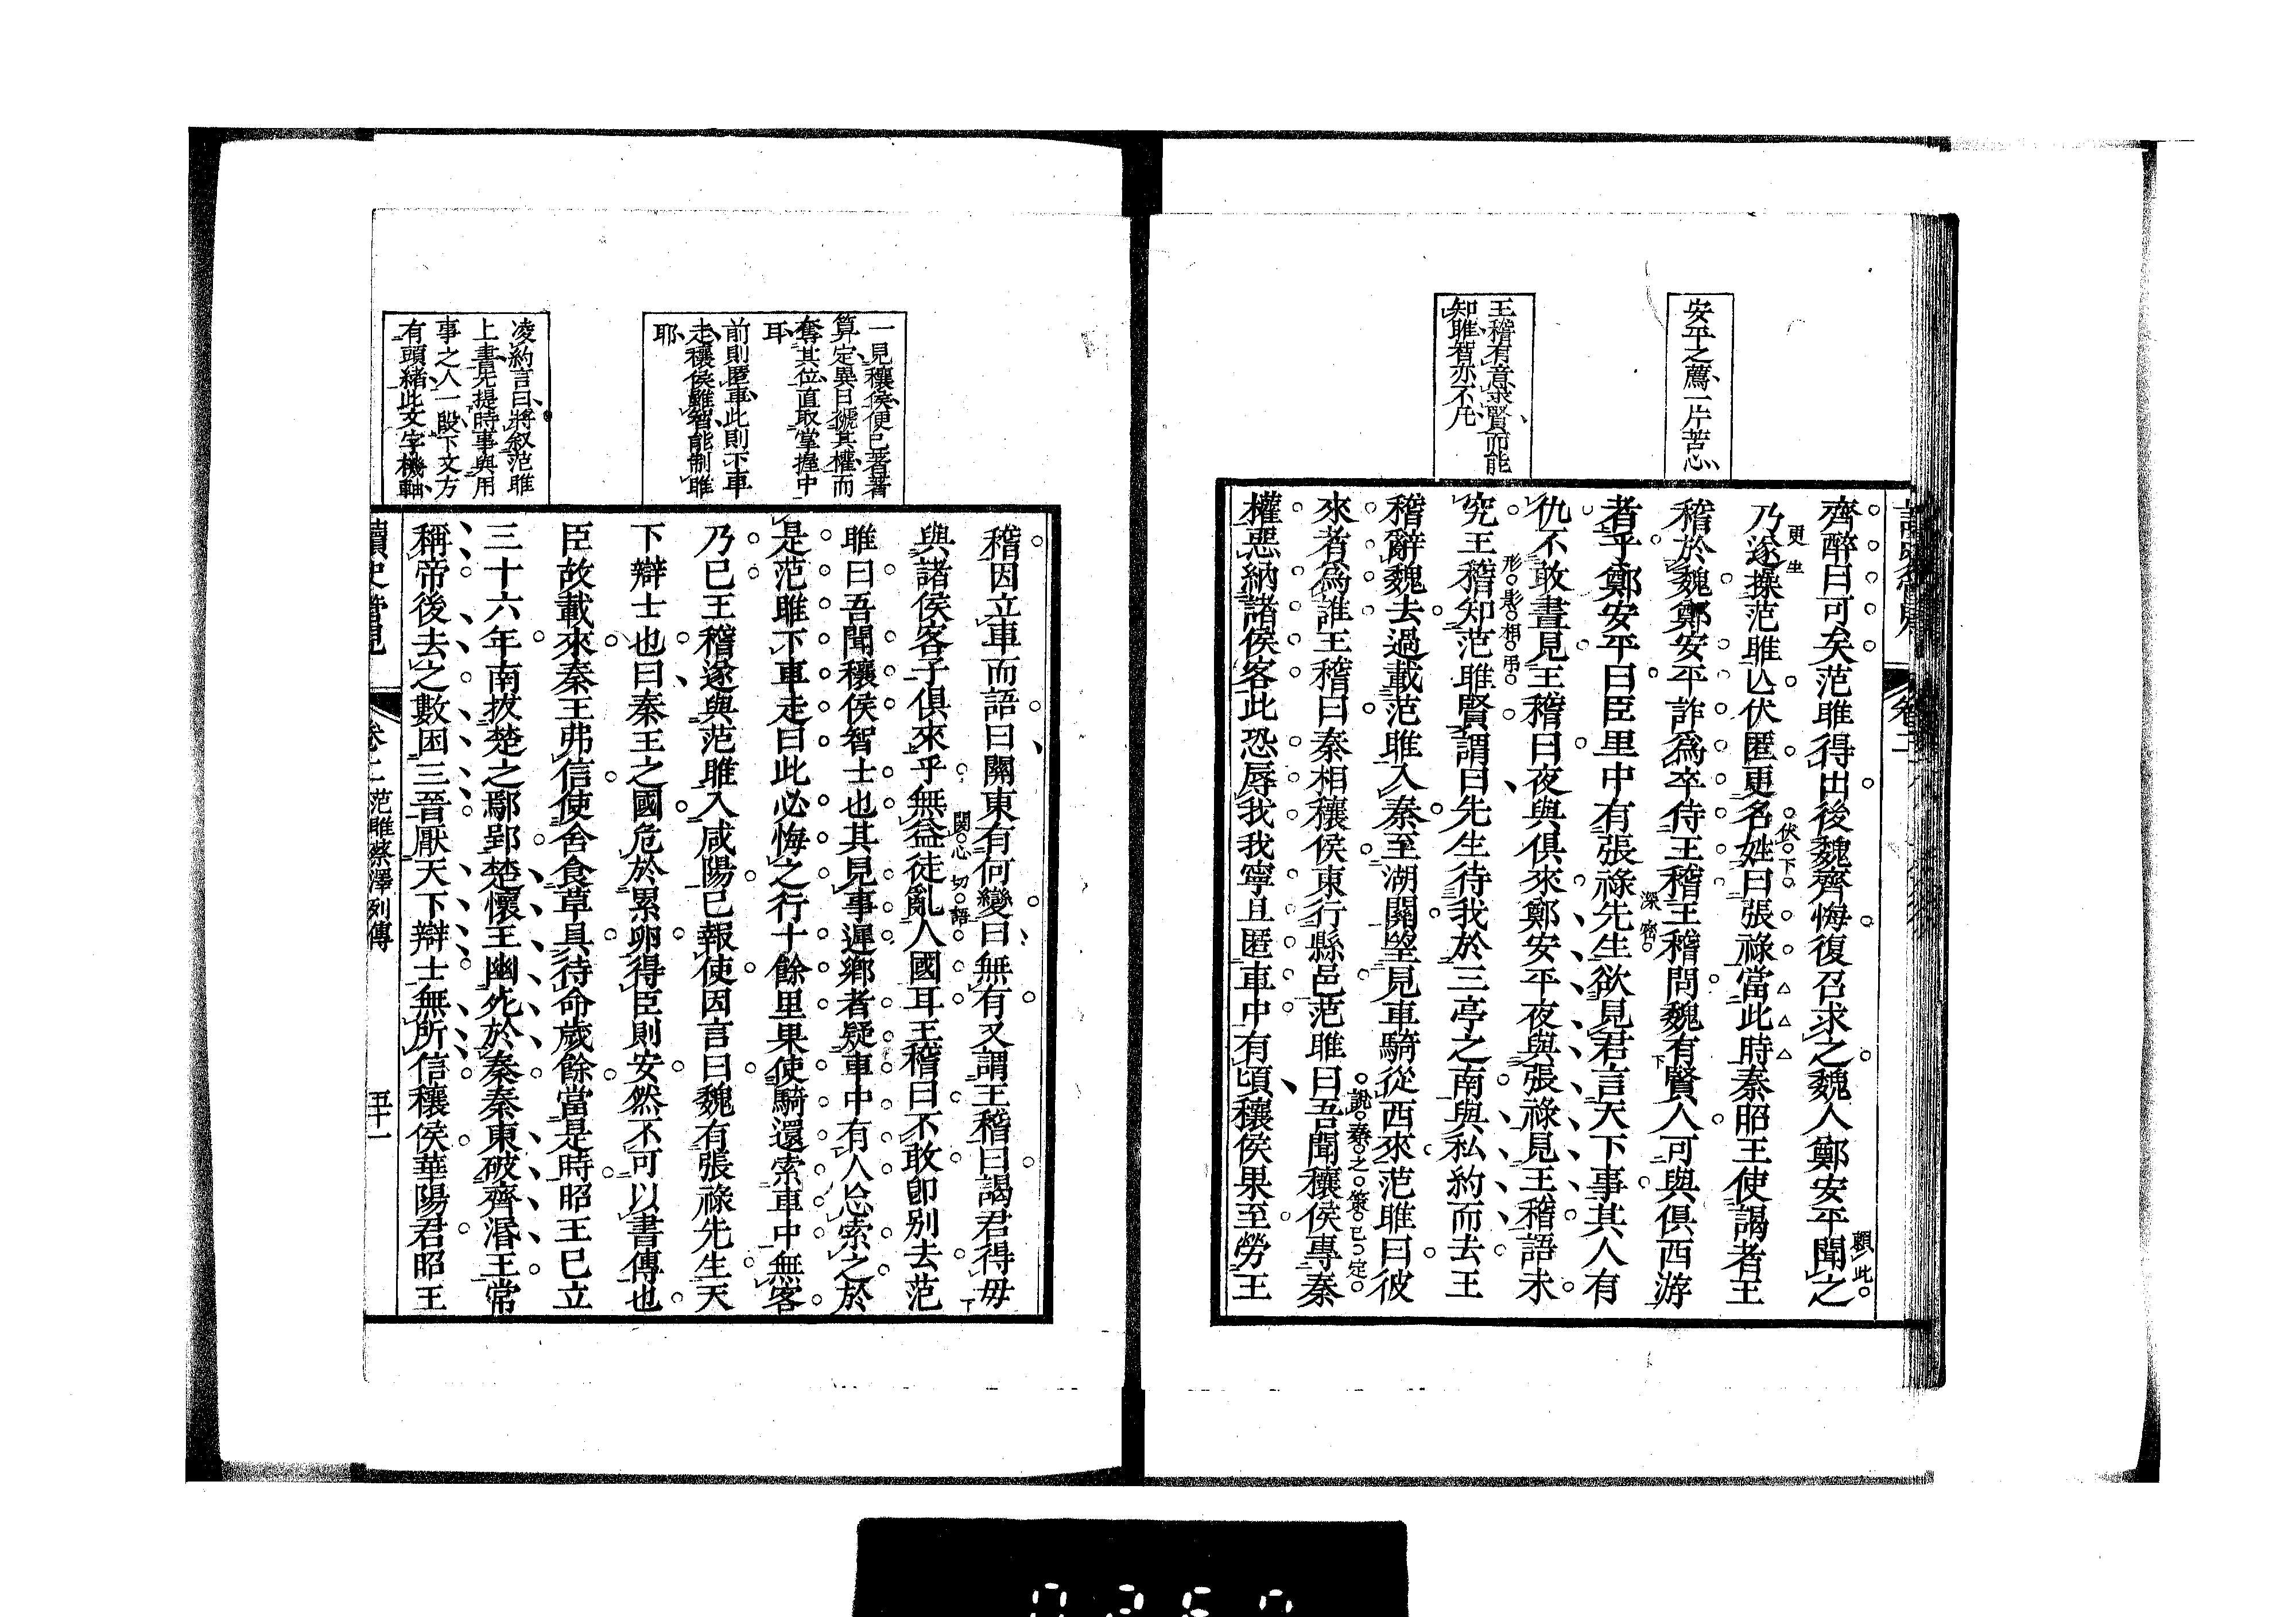 安平之薦一片苦心
王稽有意求賢而能
知雎智亦不凡
齊醉曰可矣范雎得出後魏齊悔復召求之魏人鄭安平聞之
賴此
更生
乃遂操范雎亾伏匿更名姓曰張祿當此時秦昭王使謁者王
伏下
稽於魏鄭安平詐爲卒侍王稽王稽問魏有賢人可與俱西游
深密
者乎鄭安平曰臣里中有張祿先生欲見君言天下事其人有
仇不敢晝見王稽曰夜與俱來鄭安平夜與張祿見王稽語未
形影相弔
究王稽知范雎賢謂曰先生待我於三亭之南與私約而去王
稽辭魏去過載范雎入秦至湖關望見車騎從西來范雎曰彼
來者爲誰王稽曰秦相穰侯東行縣邑范雎曰吾聞穰侯專秦
說秦之策已定
權惡納諸侯客此恐辱我我寧且匿車中有頃穰侯果至勞王
卷二
一見穰侯便已著著
算定異日褫其權而
奪其位直取掌握中
耳
前則匿車此則下車
走穰侯雖智能制雎
耶
凌約言曰將叙范雎
上書先提時事與用
事之人一段下文方
有頭緒此文字機軸
稽因立車而語曰關東有何變曰無有又謂王稽曰謁君得毋
與諸侯客子俱來乎無益徒亂人國耳王稽曰不敢卽別去范
關心切語
雎曰吾聞穰侯智士也其見事遲鄉者疑車中有人忘索之於
是范雎下車走曰此必悔之行十餘里果使騎還索車中無客
乃已王稽遂與范雎入咸陽已報使因言曰魏有張祿先生天
下辯士也曰秦王之國危於累卵得臣則安然不可以書傳也
臣故載來秦王弗信使舍食草具待命歲餘當是時昭王已立
三十六年南拔楚之鄢郢楚懷王幽死於秦秦東破齊湣王常
稱帝後去之數困三晉厭天下辯士無所信穰侯華陽君昭王
讀史管見
卷二
范雎蔡澤列傳
五十一